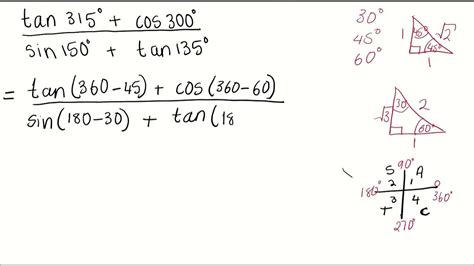 tan 315° + cos 300°
sin 150° + tan 135°
= tan(360-45) + cos(360-60)
sin(180-30) + tan(18
30°
45°
60°
1
45°
√2
45°
1
30
2
√3
60°
1
90°
S A
2 1
180° 0
360°
3 4
T C
270°